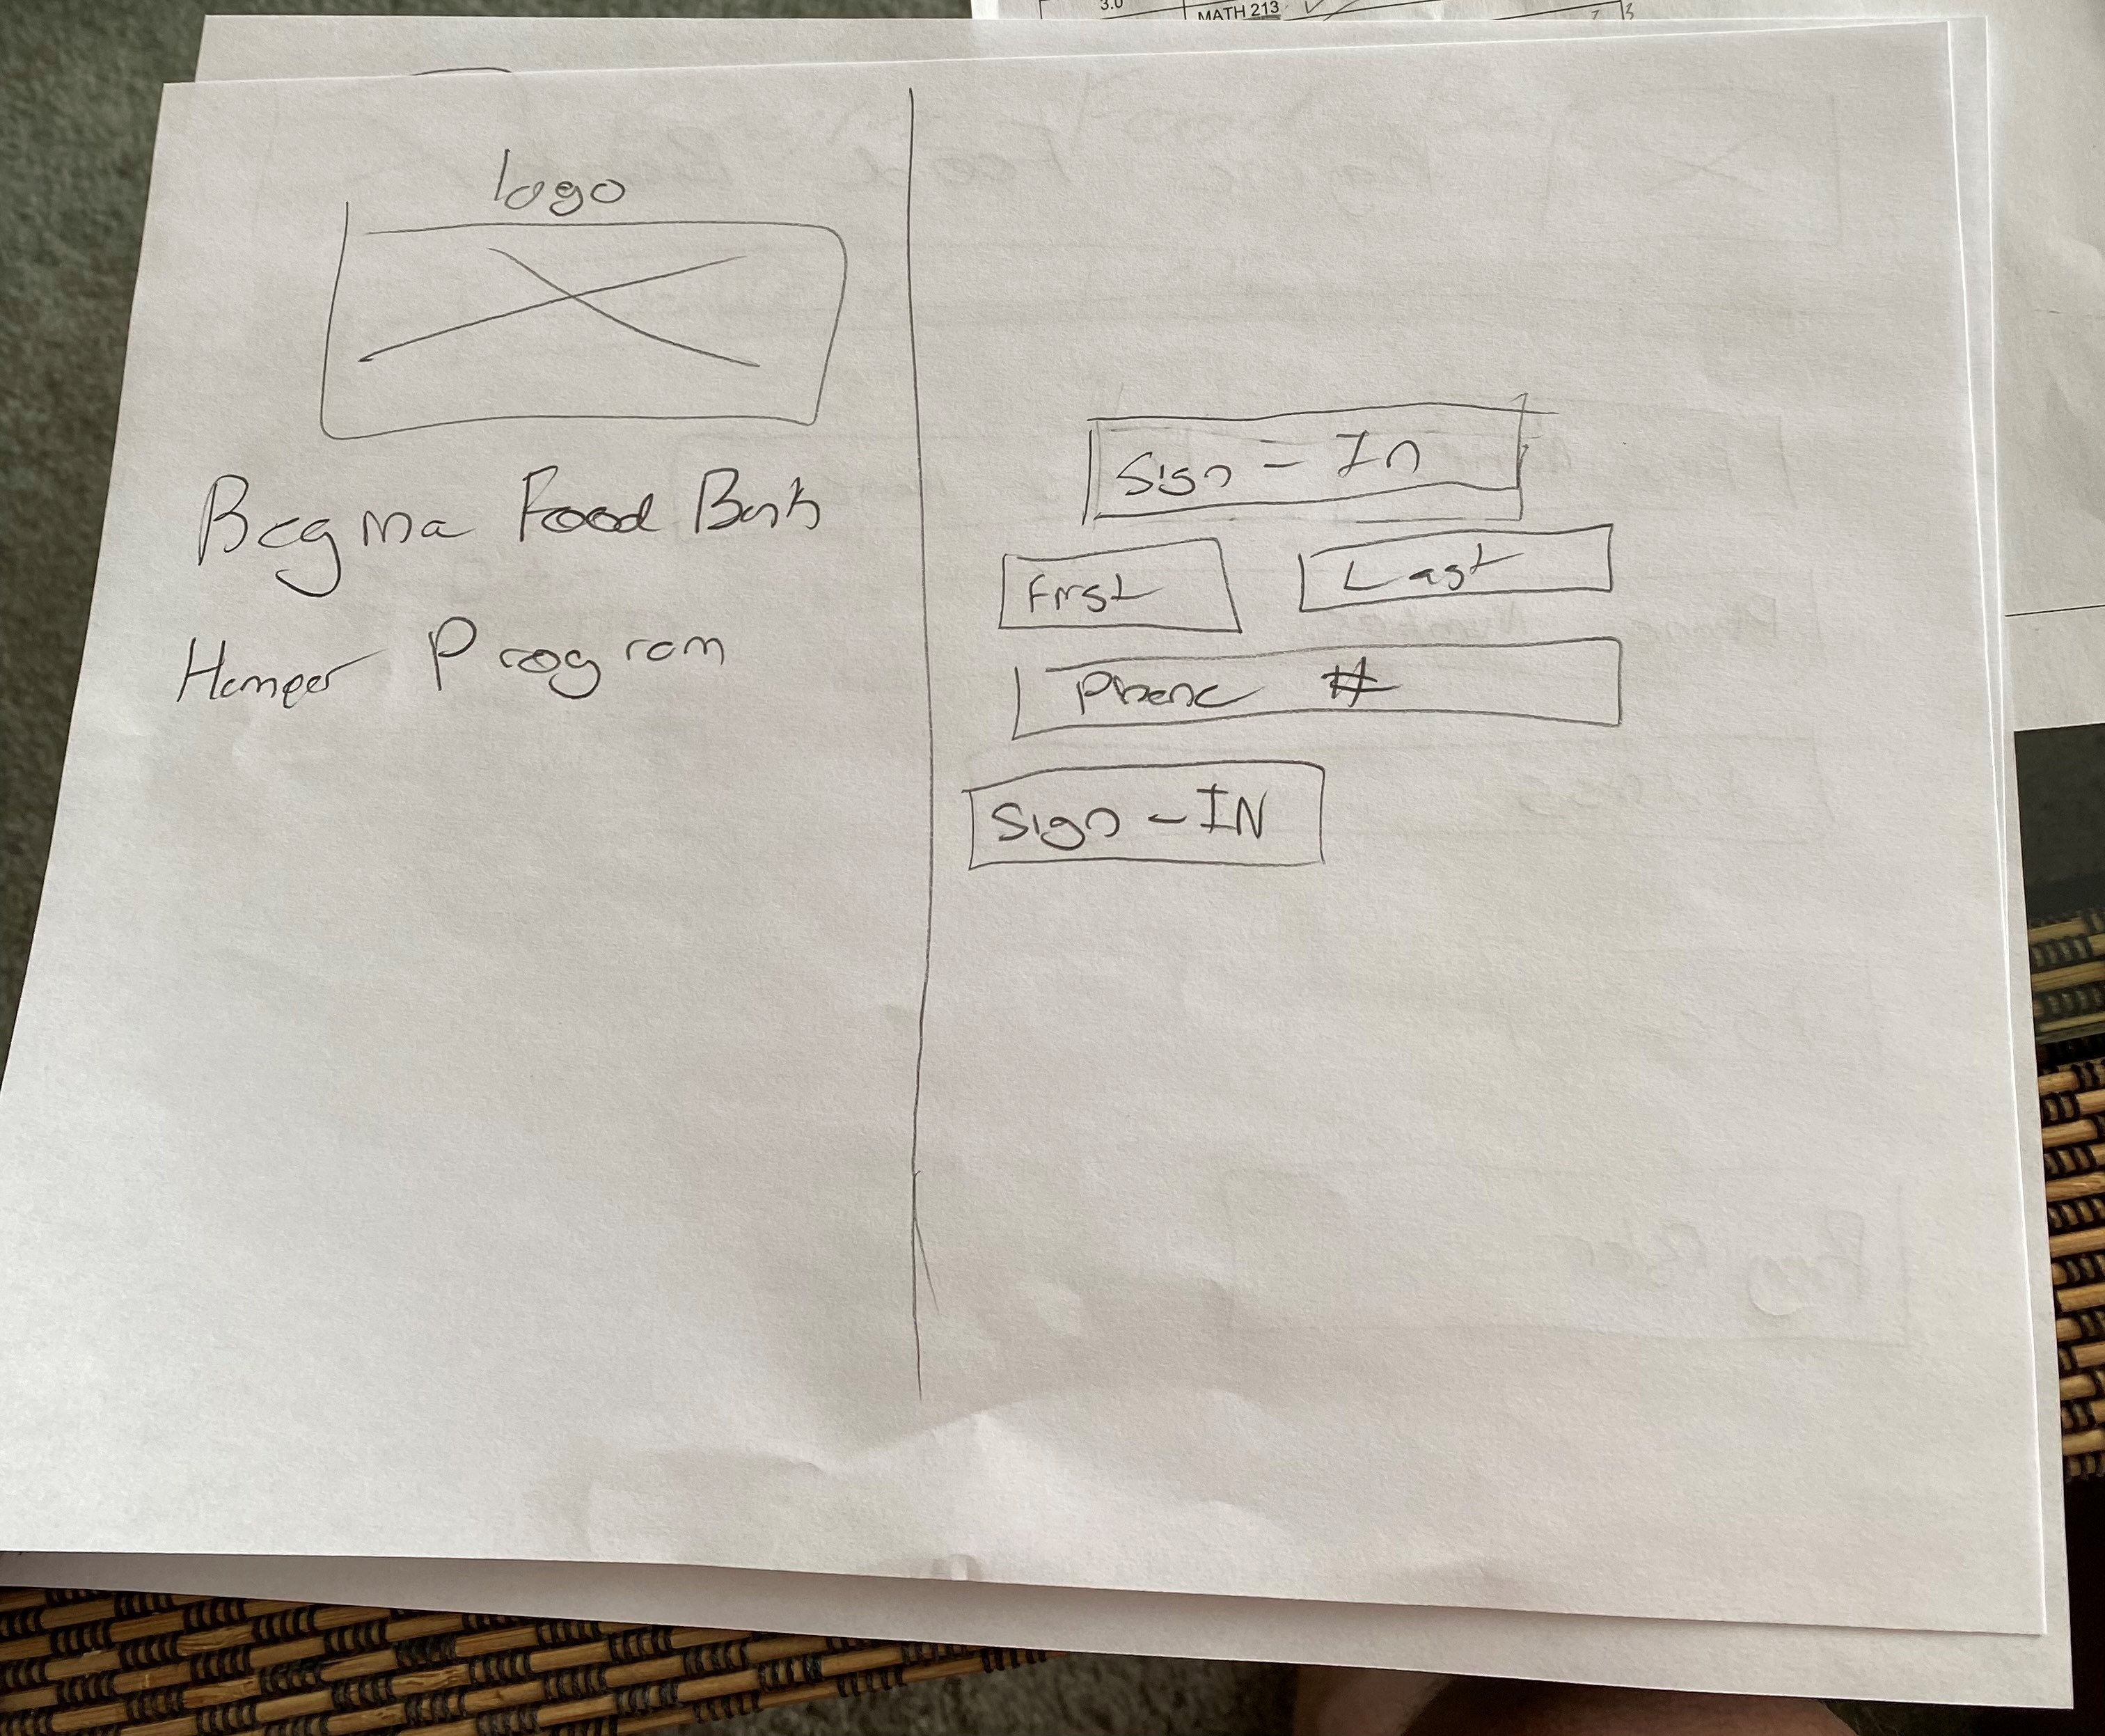 3.0
MATH 213
logo
Regina Food Bank
Hamper Program
Sign - In
First
Last
Phone #
Sign - IN